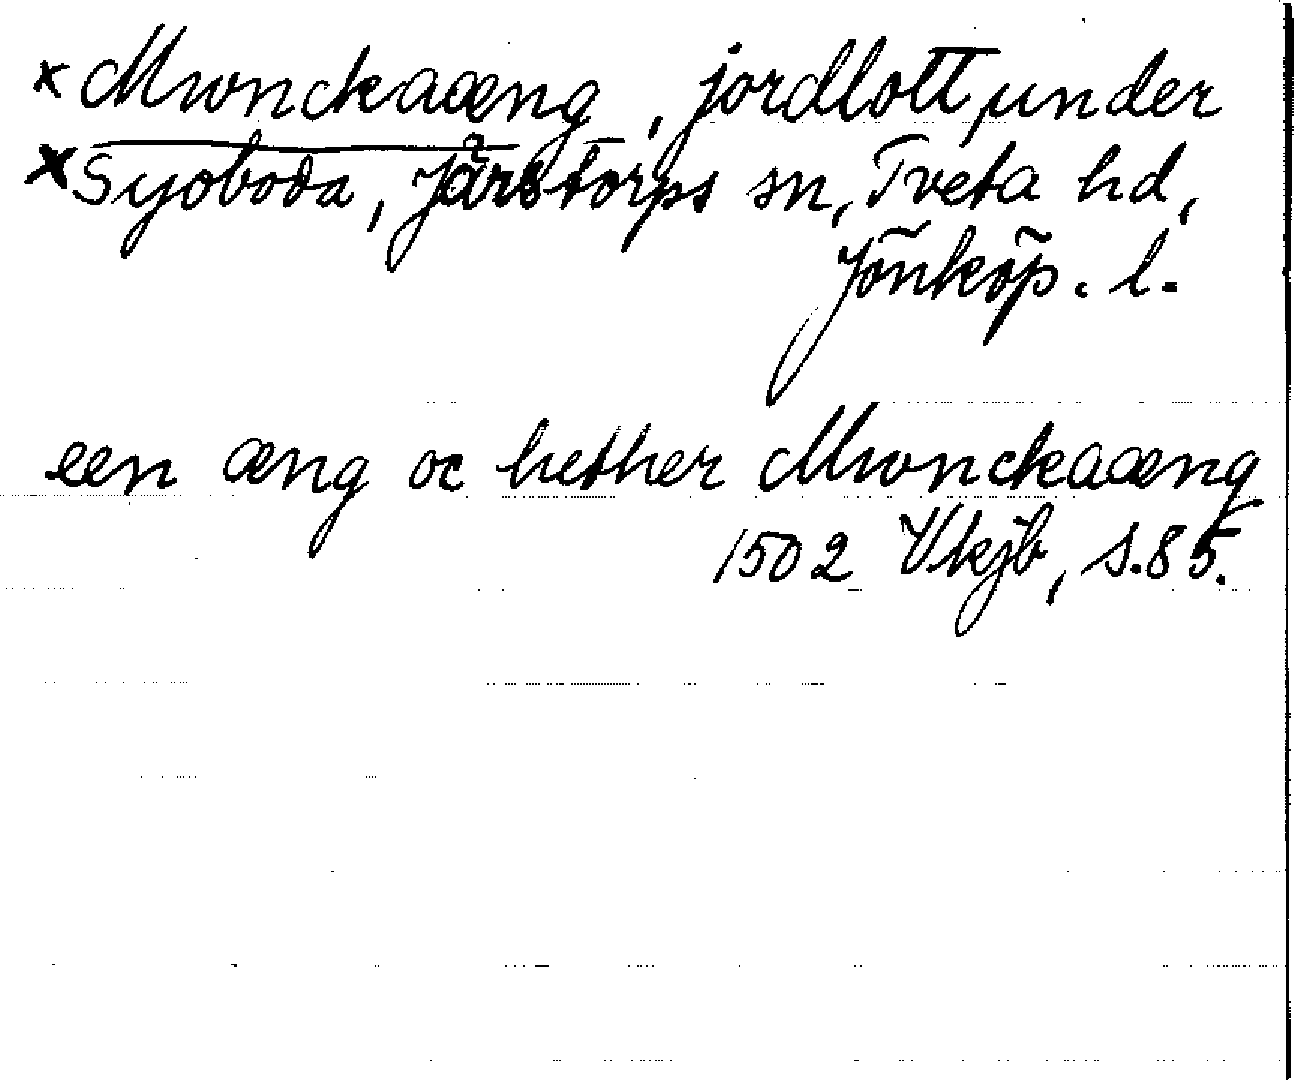 × Mwnckaæng, jordlott under
× Syoboda, Järstorps sn, Tveta hd,
Jönköp. l.
een æng oc hether Mwnckaæng
1502 Vkjb, s. 85.